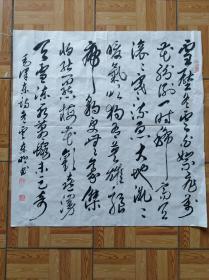 雪壓冬雲白絮飛萬
花紛謝一時稀高天
滚滚寒流急大地微微
暖氣吹獨有英雄驅
虎豹更無豪傑
怕熊羆梅花歡喜漫
天雪凍死蒼蠅未足奇
毛澤東詩冬雲